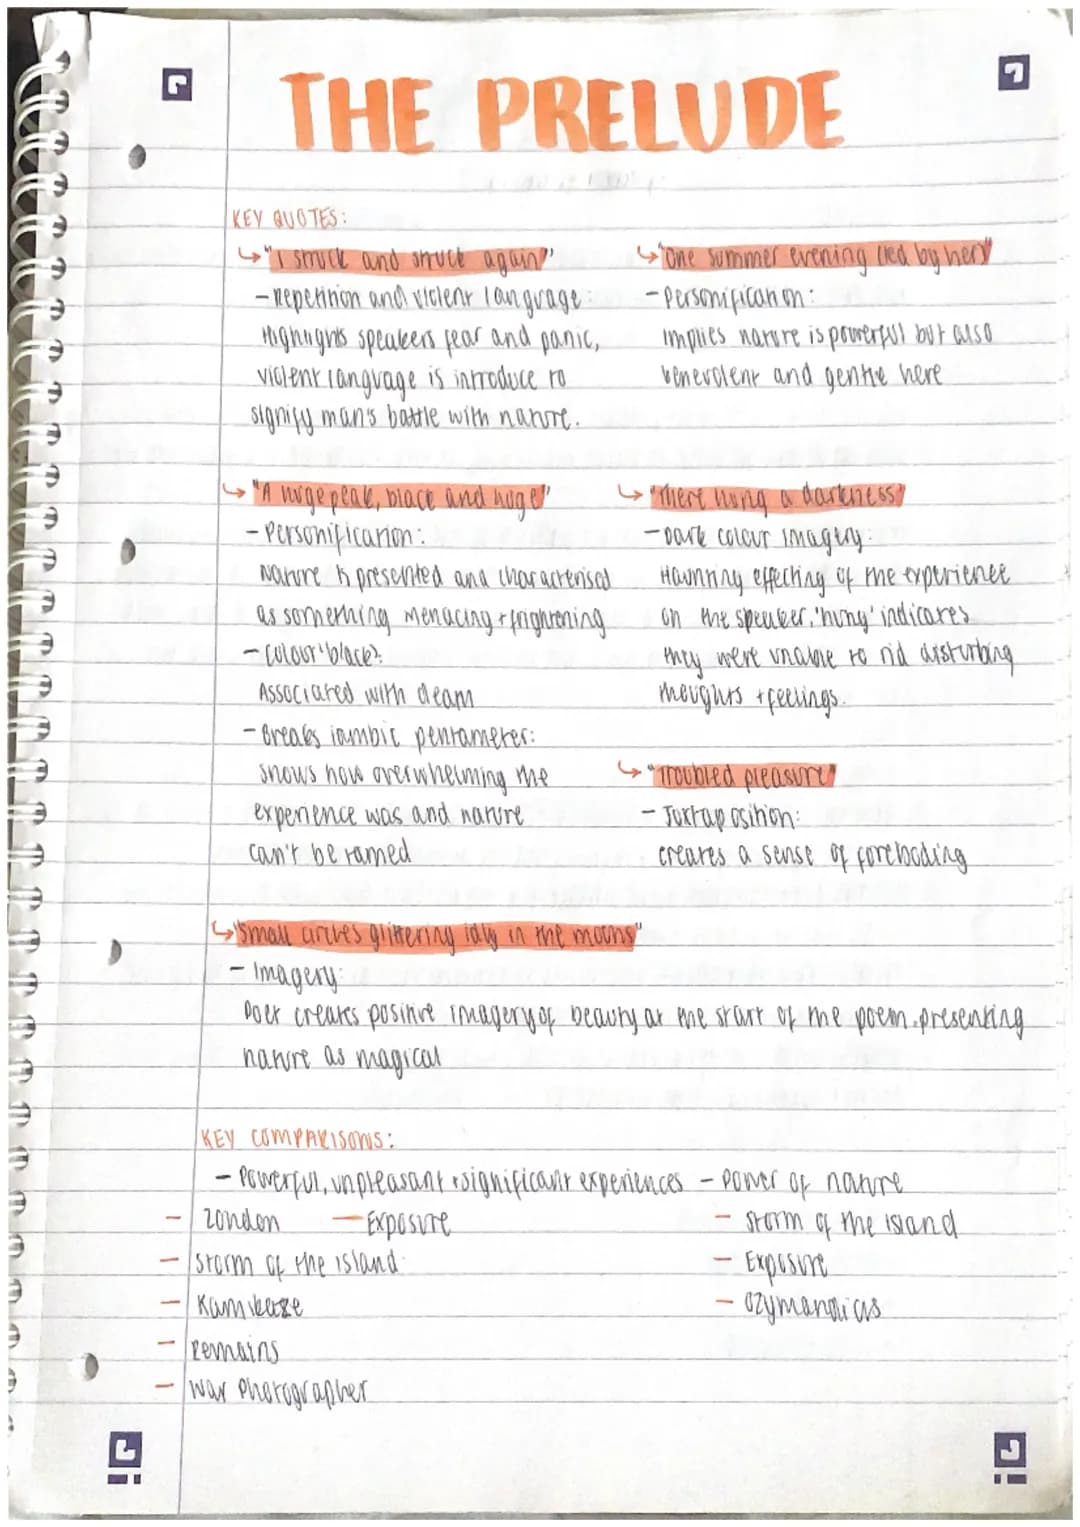 THE PRELUDE
KEY QUOTES:
"I struck and struck again"
- Repetition and violent language:
Highlights speakers fear and panic,
violent language is introduce to
signify man's battle with nature.
"One summer evening (led by her)"
- Personification:
implies nature is powerful but also
benevolent and gentle here
"A huge peak, black and huge"
- Personification:
Nature is presented and characterised
as something menacing + frightening
- Colour 'black':
Associated with death
- Breaks iambic pentameter:
shows how overwhelming the
experience was and nature
can't be tamed
"There hung a darkness"
- Dark colour imagery:
Haunting effecting of the experience
on the speaker. 'hung' indicates
they were unable to rid disturbing
thoughts + feelings.
"Troubled pleasure"
- Juxtaposition:
creates a sense of foreboding
"Small circles glittering idly in the moons"
- Imagery:
Poet creates positive imagery of beauty at the start of the poem. presenting
nature as magical
KEY COMPARISONS:
- Powerful, unpleasant + significant experiences
- London - Exposure
- Storm of the island
- Kamikaze
- Remains
- War Photographer
- Power of nature
- Storm of the island
- Exposure
- Ozymandias